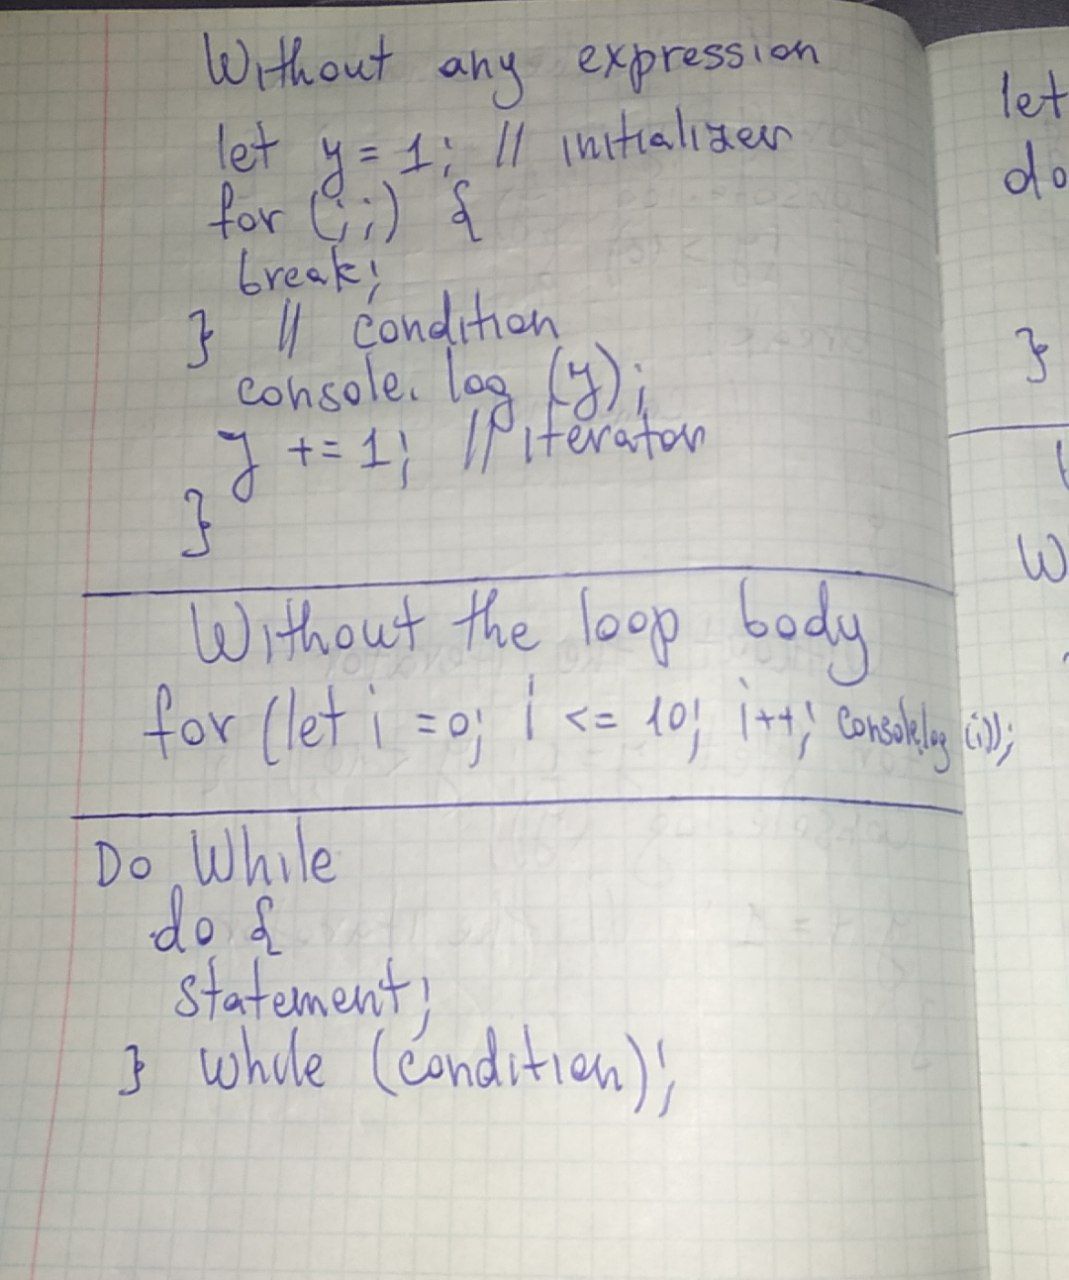 Without any expression
let y = 1; // initializer
for (;;) {
break;
} // condition
console.log (y);
y += 1; // iterator
}
Without the loop body
for (let i = 0; i <= 10; i++; console.log (i));
Do While
do {
statement;
} while (condition);
let
do
}